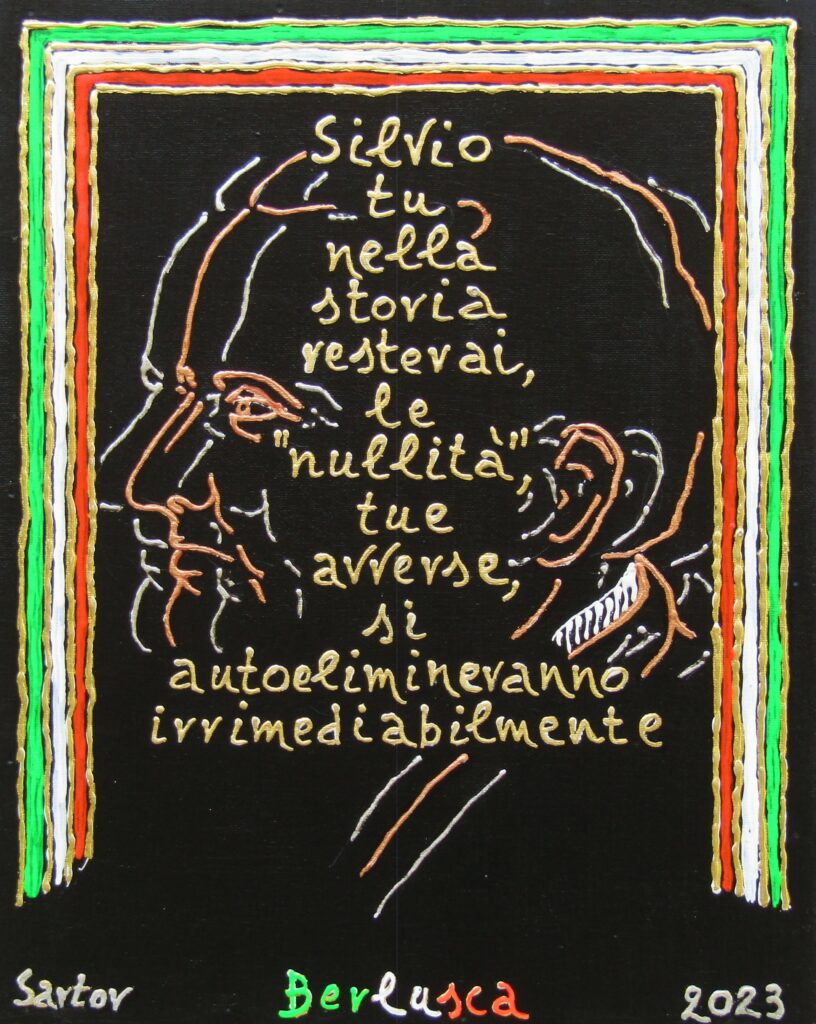 Silvio
tu
nella
storia
resterai,
le
"nullità",
tue
avverse,
si
autoelimineranno
irrimediabilmente
Sartor Berlusca 2023